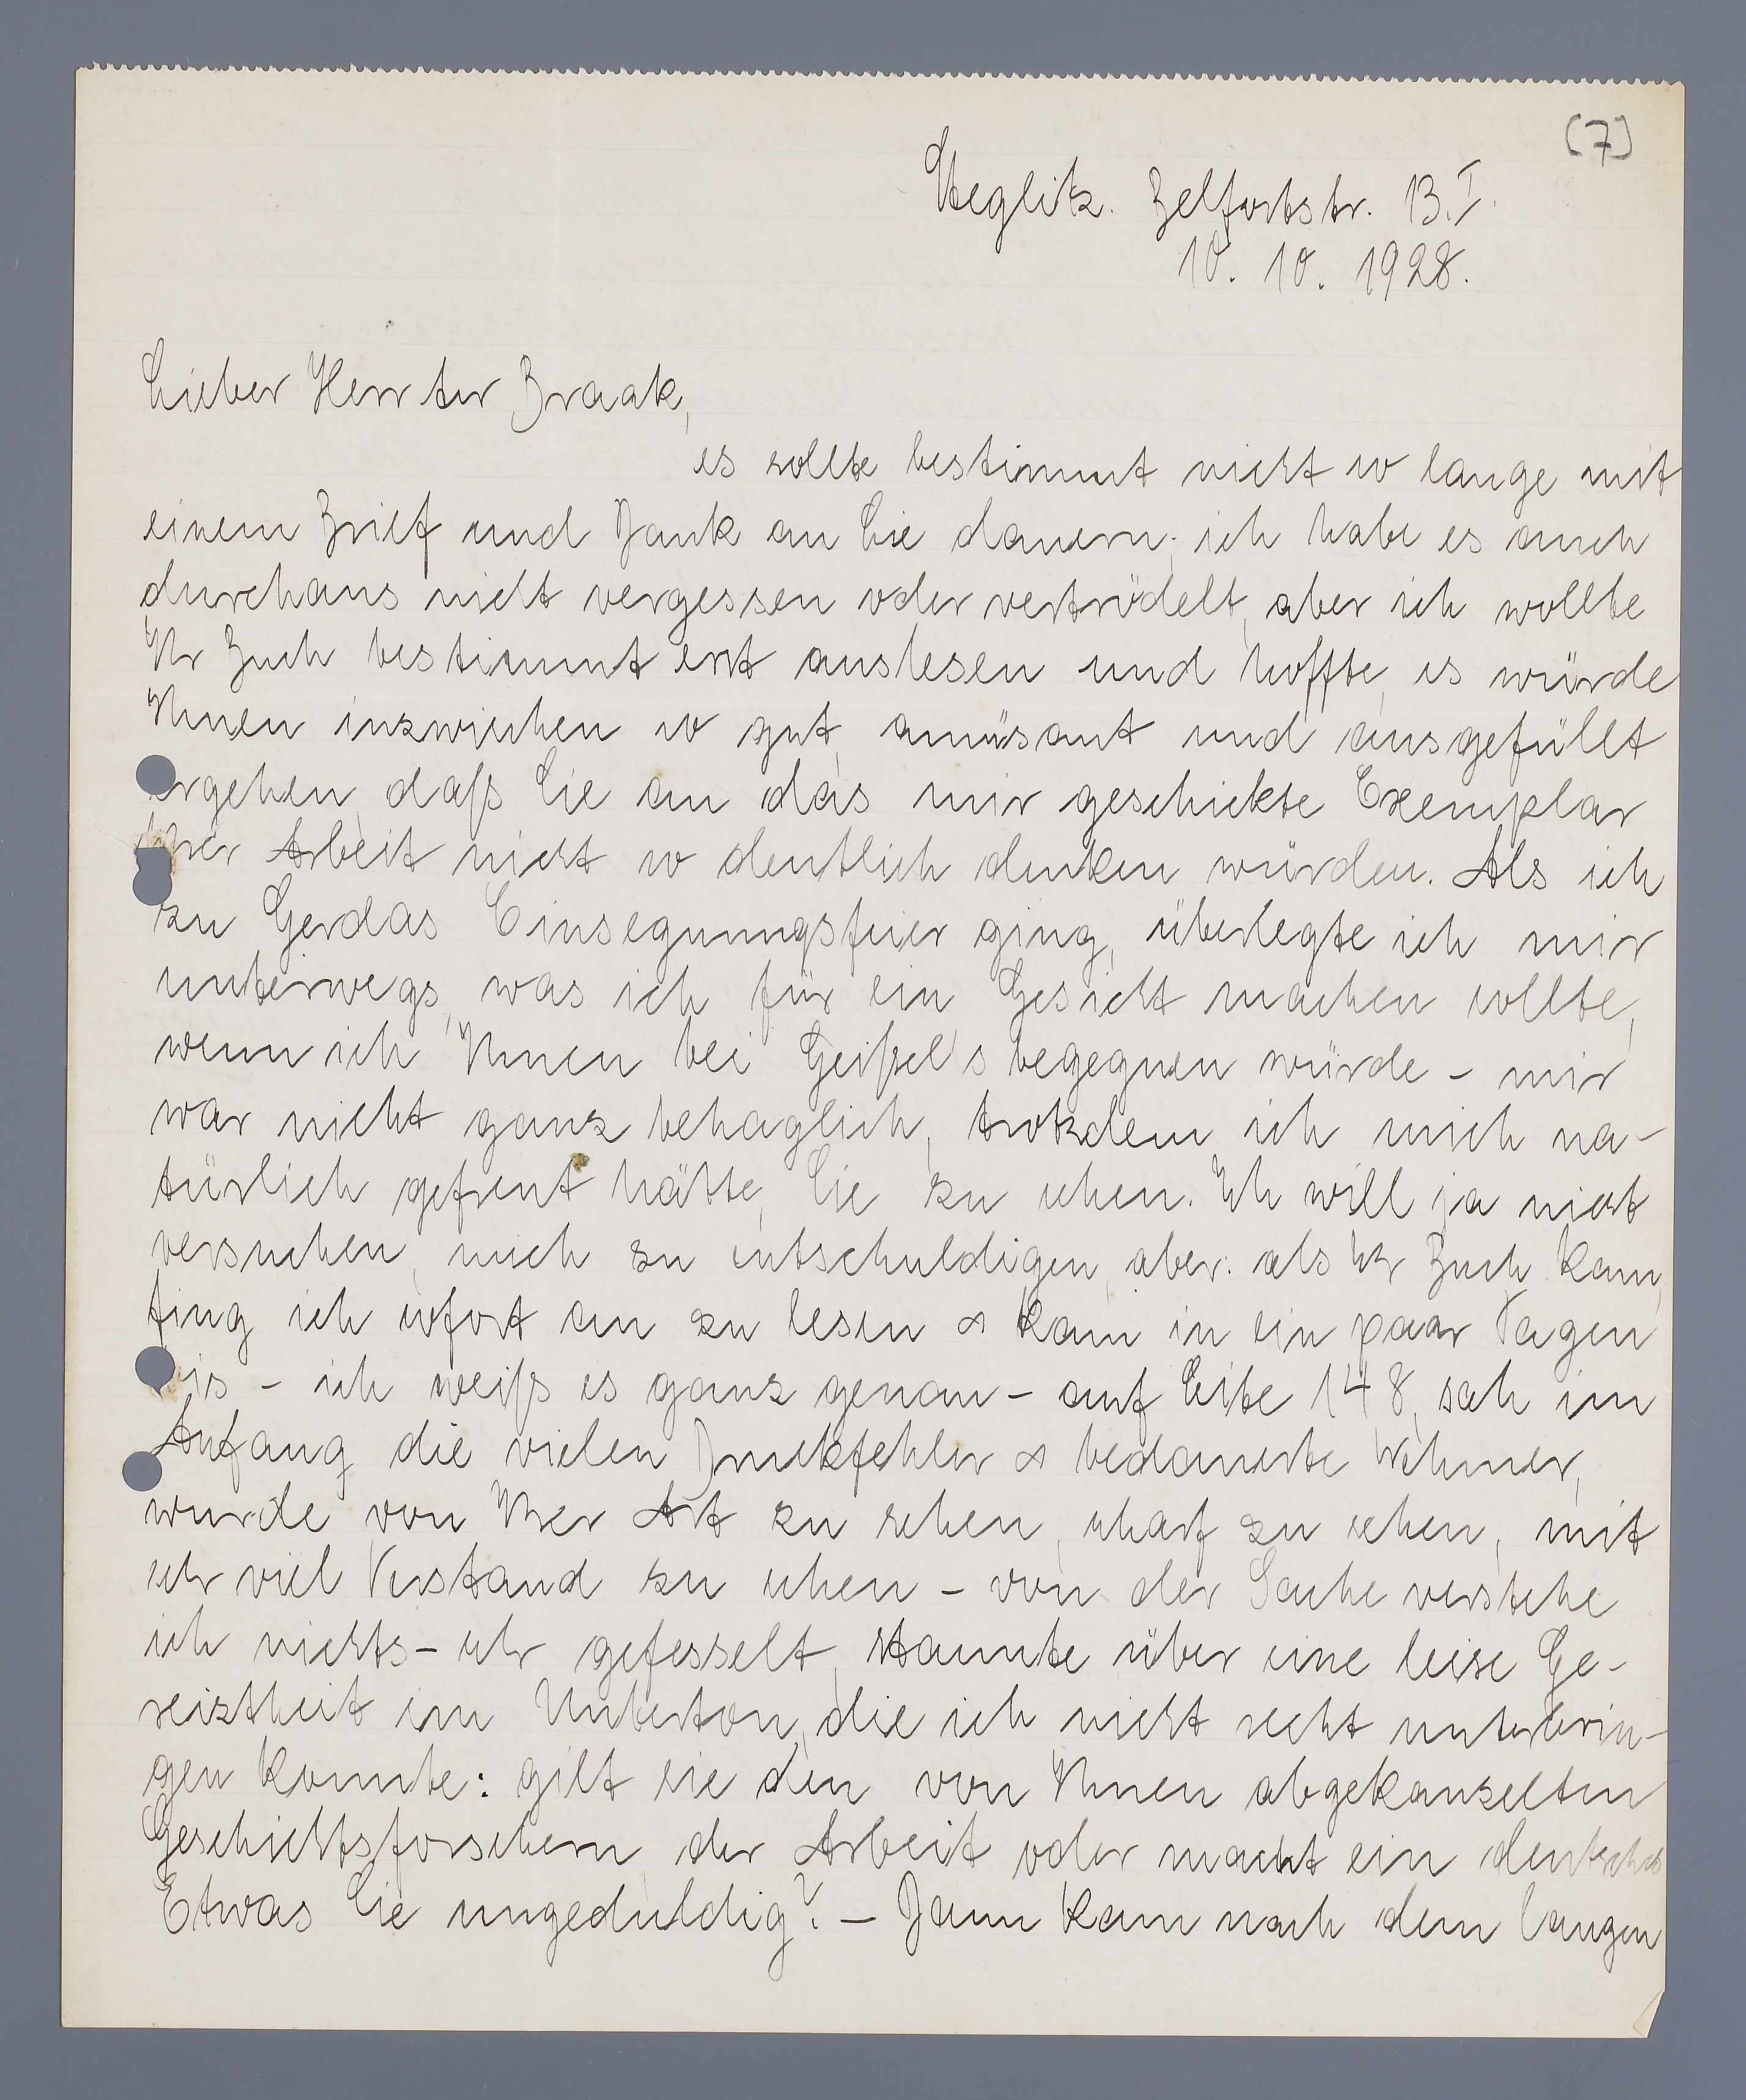 (7)
Steglitz. Belfortstr. 13.I.
10. 10. 1928.
Lieber Herr ter Braak,
es sollte bestimmt nicht so lange mit
einem Brief und Dank an Sie dauern; ich habe es auch
durchaus nicht vergessen oder vertrödelt, aber ich wollte
Ihr Buch bestimmt erst auslesen und hoffte, es würde
Ihnen inzwischen so gut, amüsant und ausgefüllt
ergehen, daß Sie an das mir geschickte Exemplar
Ihrer Arbeit nicht so deutlich denken würden. Als ich
zu Gerdas Einsegnungsfeier ging, überlegte ich mir
unterwegs, was ich für ein Gesicht machen sollte,
wenn ich Ihnen bei Geißel's begegnen würde - mir
war nicht ganz behaglich, trotzdem ich mich na-
türlich gefreut hätte, Sie zu sehen. Ich will ja nicht
versuchen, mich zu entschuldigen, aber: als Ihr Buch kam,
fing ich sofort an zu lesen & kam in ein paar Tagen
bis - ich weiß es ganz genau - auf Seite 148, sah im
Anfang die vielen Druckfehler & bedauerte
wurde von Ihrer Art zu sehen, scharf zu sehen, mit
sehr viel Verstand zu sehen - von der Sache verstehe
ich nichts - sehr gefesselt, staunte über eine leise Ge-
reiztheit im Unterton, die ich nicht recht unterbrin-
gen konnte: gilt sie den von Ihnen abgekanzelten
Geschichtsforschern der Arbeit oder macht ein deutsches
Etwas Sie ungeduldig? - Dann kam nach dem langen